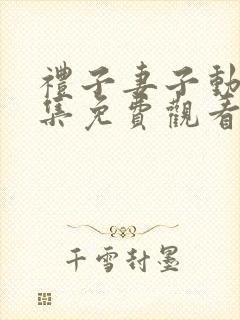 禮子妻子動
集免費觀看
千雪封墨